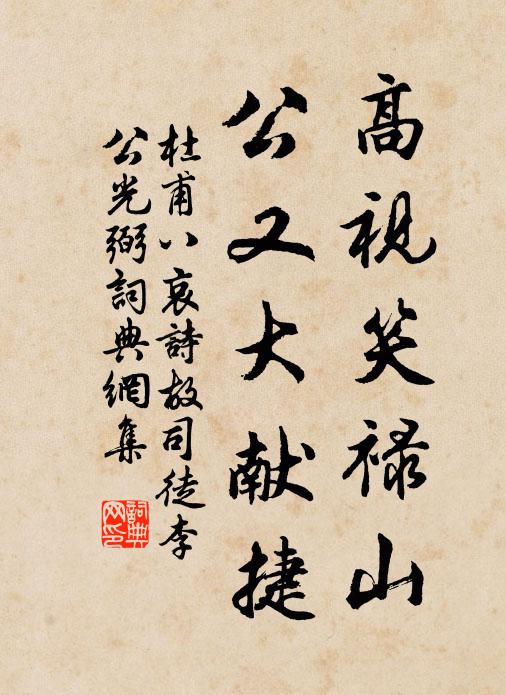 高視笑禄山
公又大献捷
杜甫八哀詩故司徒李
公光弼詞典網集
詞典
网印